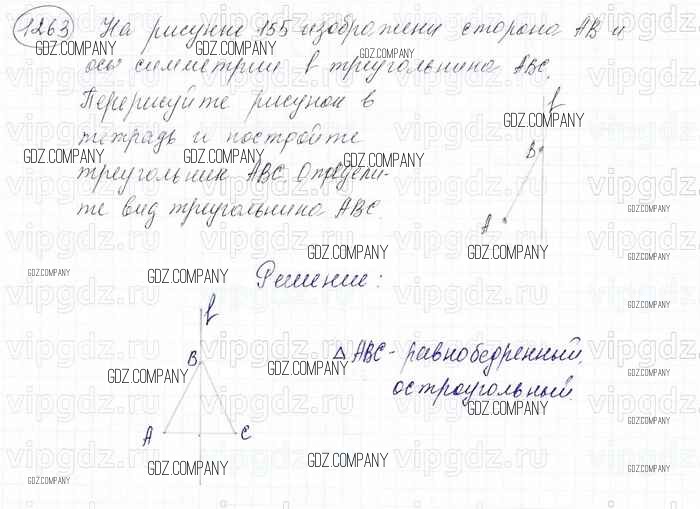 1263 На рисунке 155 изображены сторона AB и
ось симметрии l треугольника ABC.
Перерисуйте рисунок в
тетрадь и постройте
треугольник ABC. Определи-
те вид треугольника ABC.
l
B
A
Решение:
l
B
A C
△ ABC - равнобедренный,
остроугольный.
GDZ.COMPANY
vipgdz.ru